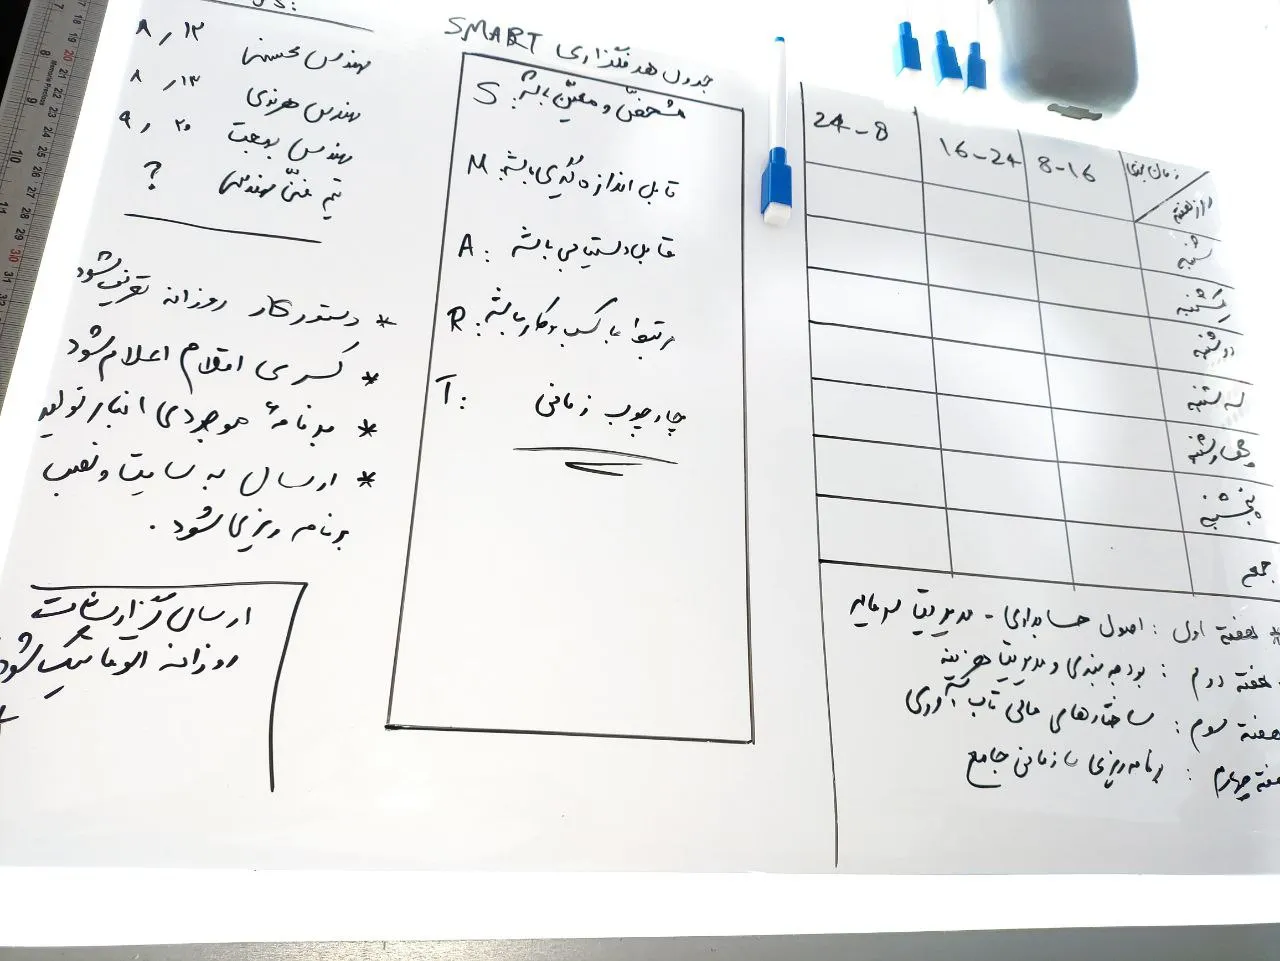 زمان بندی
روز هفته
8-16
16-24
24-8
شنبه
یکشنبه
دوشنبه
سه شنبه
چهارشنبه
پنجشنبه
جمعه
* هفته اول : اصول حسابداری - مدیریت سرمایه
هفته دوم : بودجه بندی و مدیریت هزینه
هفته سوم : ساختارهای مالی تاب آوری
هفته چهارم : برنامه ریزی سازمانی جامع
جدول هدفگذاری SMART
S : مشخص و معین باشه
M : قابل اندازه گیری باشه
A : قابل دستیابی باشه
R : مرتبط با کسب و کار باشه
T : چارچوب زمانی
مهندس محسنی ۸٫۱۲
مهندس مرندی ۸٫۱۳
مهندس بهجت ۹٫۲۰
تیم فنی مهندسی ؟
* دستور کار روزانه تعریف شود
* کسری اقلام اعلام شود
* برنامهٔ موجودی انبار تولید
* ارسال به سایت و نصب
برنامه ریزی شود .
ارسال گزارشات
روزانه اتوماتیک شود